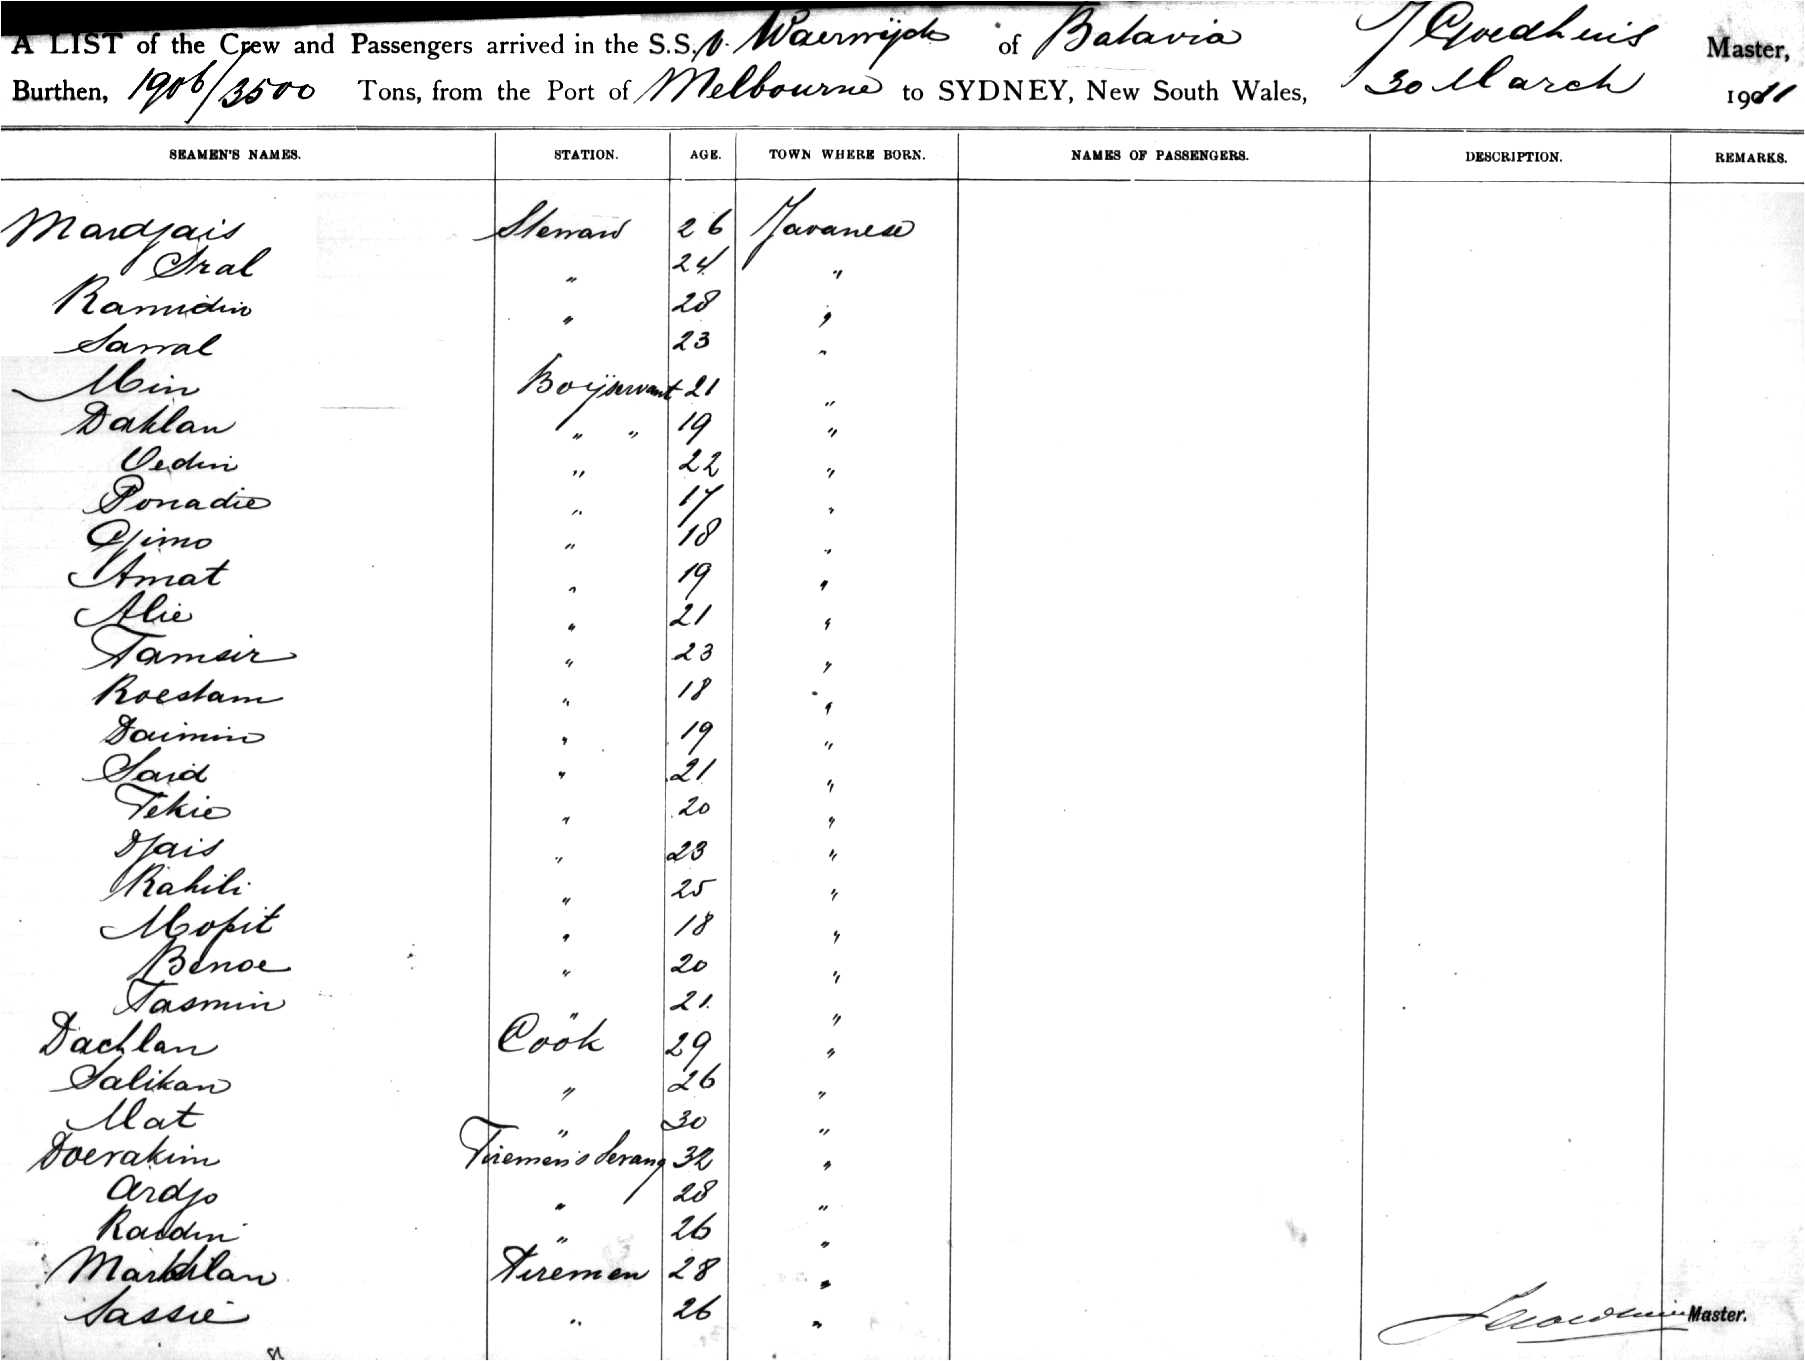 A LIST of the Crew and Passengers arrived in the S.S. v. Waerwijck of Batavia J Goedhuis Master,
Burthen, 1906/3500 Tons, from the Port of Melbourne to SYDNEY, New South Wales, 30 March 1911
SEAMEN'S NAMES. STATION. AGE. TOWN WHERE BORN. NAMES OF PASSENGERS. DESCRIPTION. REMARKS.
Mardjais Steward 26 Javanese
Sral " 24 "
Ramidin " 28 "
Sarral " 23 "
Min Boyservant 21 "
Dahlan " " 19 "
Oedin " 22 "
Ponadie " 17 "
Djimo " 18 "
Amat " 19 "
Alie " 21 "
Tamsir " 23 "
Roestam " 18 "
Daimin " 19 "
Said " 21 "
Tekie " 20 "
Djais " 23 "
Rahili " 25 "
Mopit " 18 "
Benoe " 20 "
Tasmin " 21 "
Dachlan Cook 29 "
Salikan " 26 "
Mat " 30 "
Doerakim Firemen's Serang 32 "
Ardjo " 28 "
Raidin " 26 "
Markhlan Firemen 28 "
Sassie " 26 "
J Goedhuis Master.